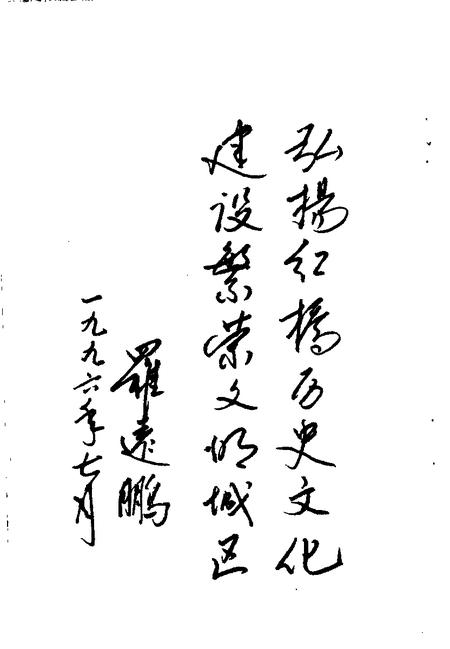 弘揚红橋历史文化
建设繁荣文明城区
羅遠鹏
一九九六年七月